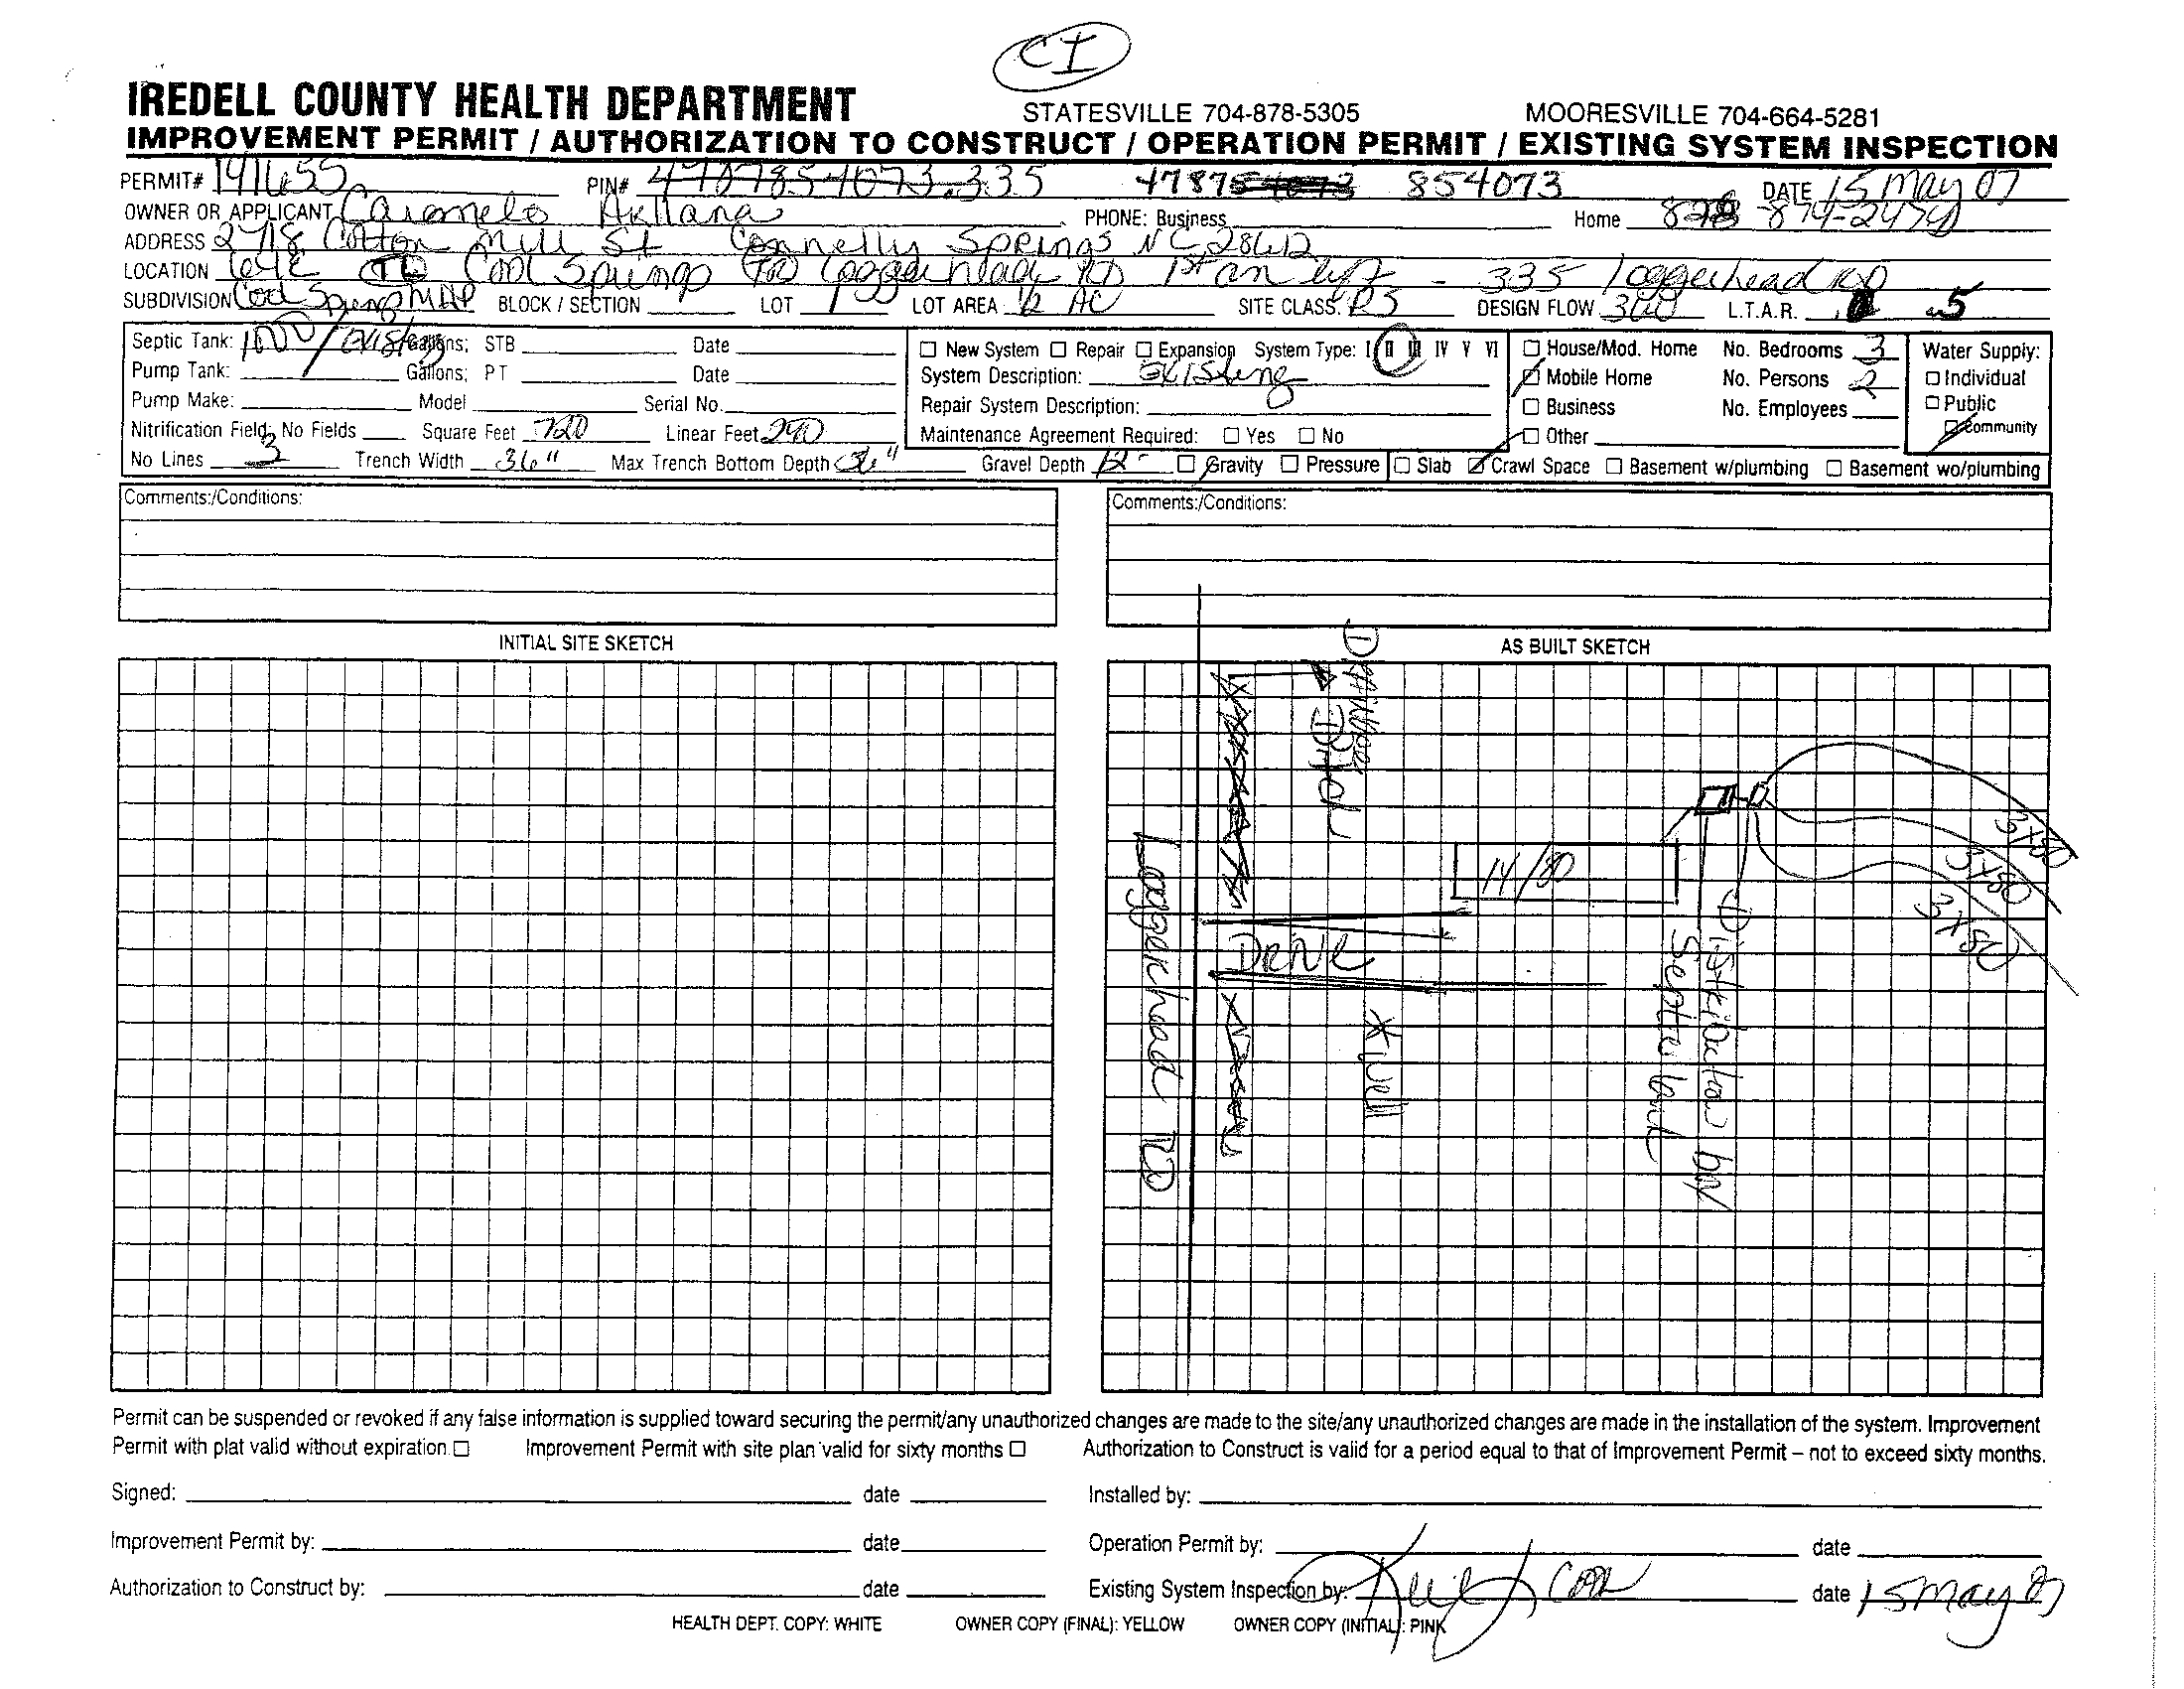 CI
IREDELL COUNTY HEALTH DEPARTMENT STATESVILLE 704-878-5305 MOORESVILLE 704-664-5281
IMPROVEMENT PERMIT / AUTHORIZATION TO CONSTRUCT / OPERATION PERMIT / EXISTING SYSTEM INSPECTION
PERMIT# 141655 PIN# 4787854073.335 4787 854073 DATE 15 May 07
OWNER OR APPLICANT Caromelo PHONE: Business Home 828-874-2474
ADDRESS 2718 Cotton Mill St Connelly Springs NC 28612
LOCATION 64E Cool Springs RD Loggerhead RD 1st on left - 335 Loggerhead RD
SUBDIVISION Cool Springs MHP BLOCK / SECTION LOT 1 LOT AREA 1/2 AC SITE CLASS. PS DESIGN FLOW 360 L.T.A.R. .5
Septic Tank: 1000 / Existing Gallons; STB Date
Pump Tank: Gallons; PT Date
Pump Make: Model Serial No.
Nitrification Field: No Fields Square Feet 720 Linear Feet 240
No Lines 3 Trench Width 36" Max Trench Bottom Depth 36" Gravel Depth 12" Gravity Pressure Slab Crawl Space Basement w/plumbing Basement wo/plumbing
New System Repair Expansion System Type: I II III IV V VI
System Description: Existing
Repair System Description:
Maintenance Agreement Required: Yes No
House/Mod. Home No. Bedrooms 3
Mobile Home No. Persons 2
Business No. Employees
Other
Water Supply:
Individual
Public
Community
Comments:/Conditions: Comments:/Conditions:
INITIAL SITE SKETCH AS BUILT SKETCH
Drainage
Ditch
Loggerhead RD
14/80
Drive
* well
Septic tank
Distribution box
3x80
3x80
3x80
Permit can be suspended or revoked if any false information is supplied toward securing the permit/any unauthorized changes are made to the site/any unauthorized changes are made in the installation of the system. Improvement
Permit with plat valid without expiration. Improvement Permit with site plan valid for sixty months Authorization to Construct is valid for a period equal to that of Improvement Permit – not to exceed sixty months.
Signed: date Installed by:
Improvement Permit by: date Operation Permit by: date
Authorization to Construct by: date Existing System Inspection by: date 15 May 07
HEALTH DEPT. COPY: WHITE OWNER COPY (FINAL): YELLOW OWNER COPY (INITIAL): PINK